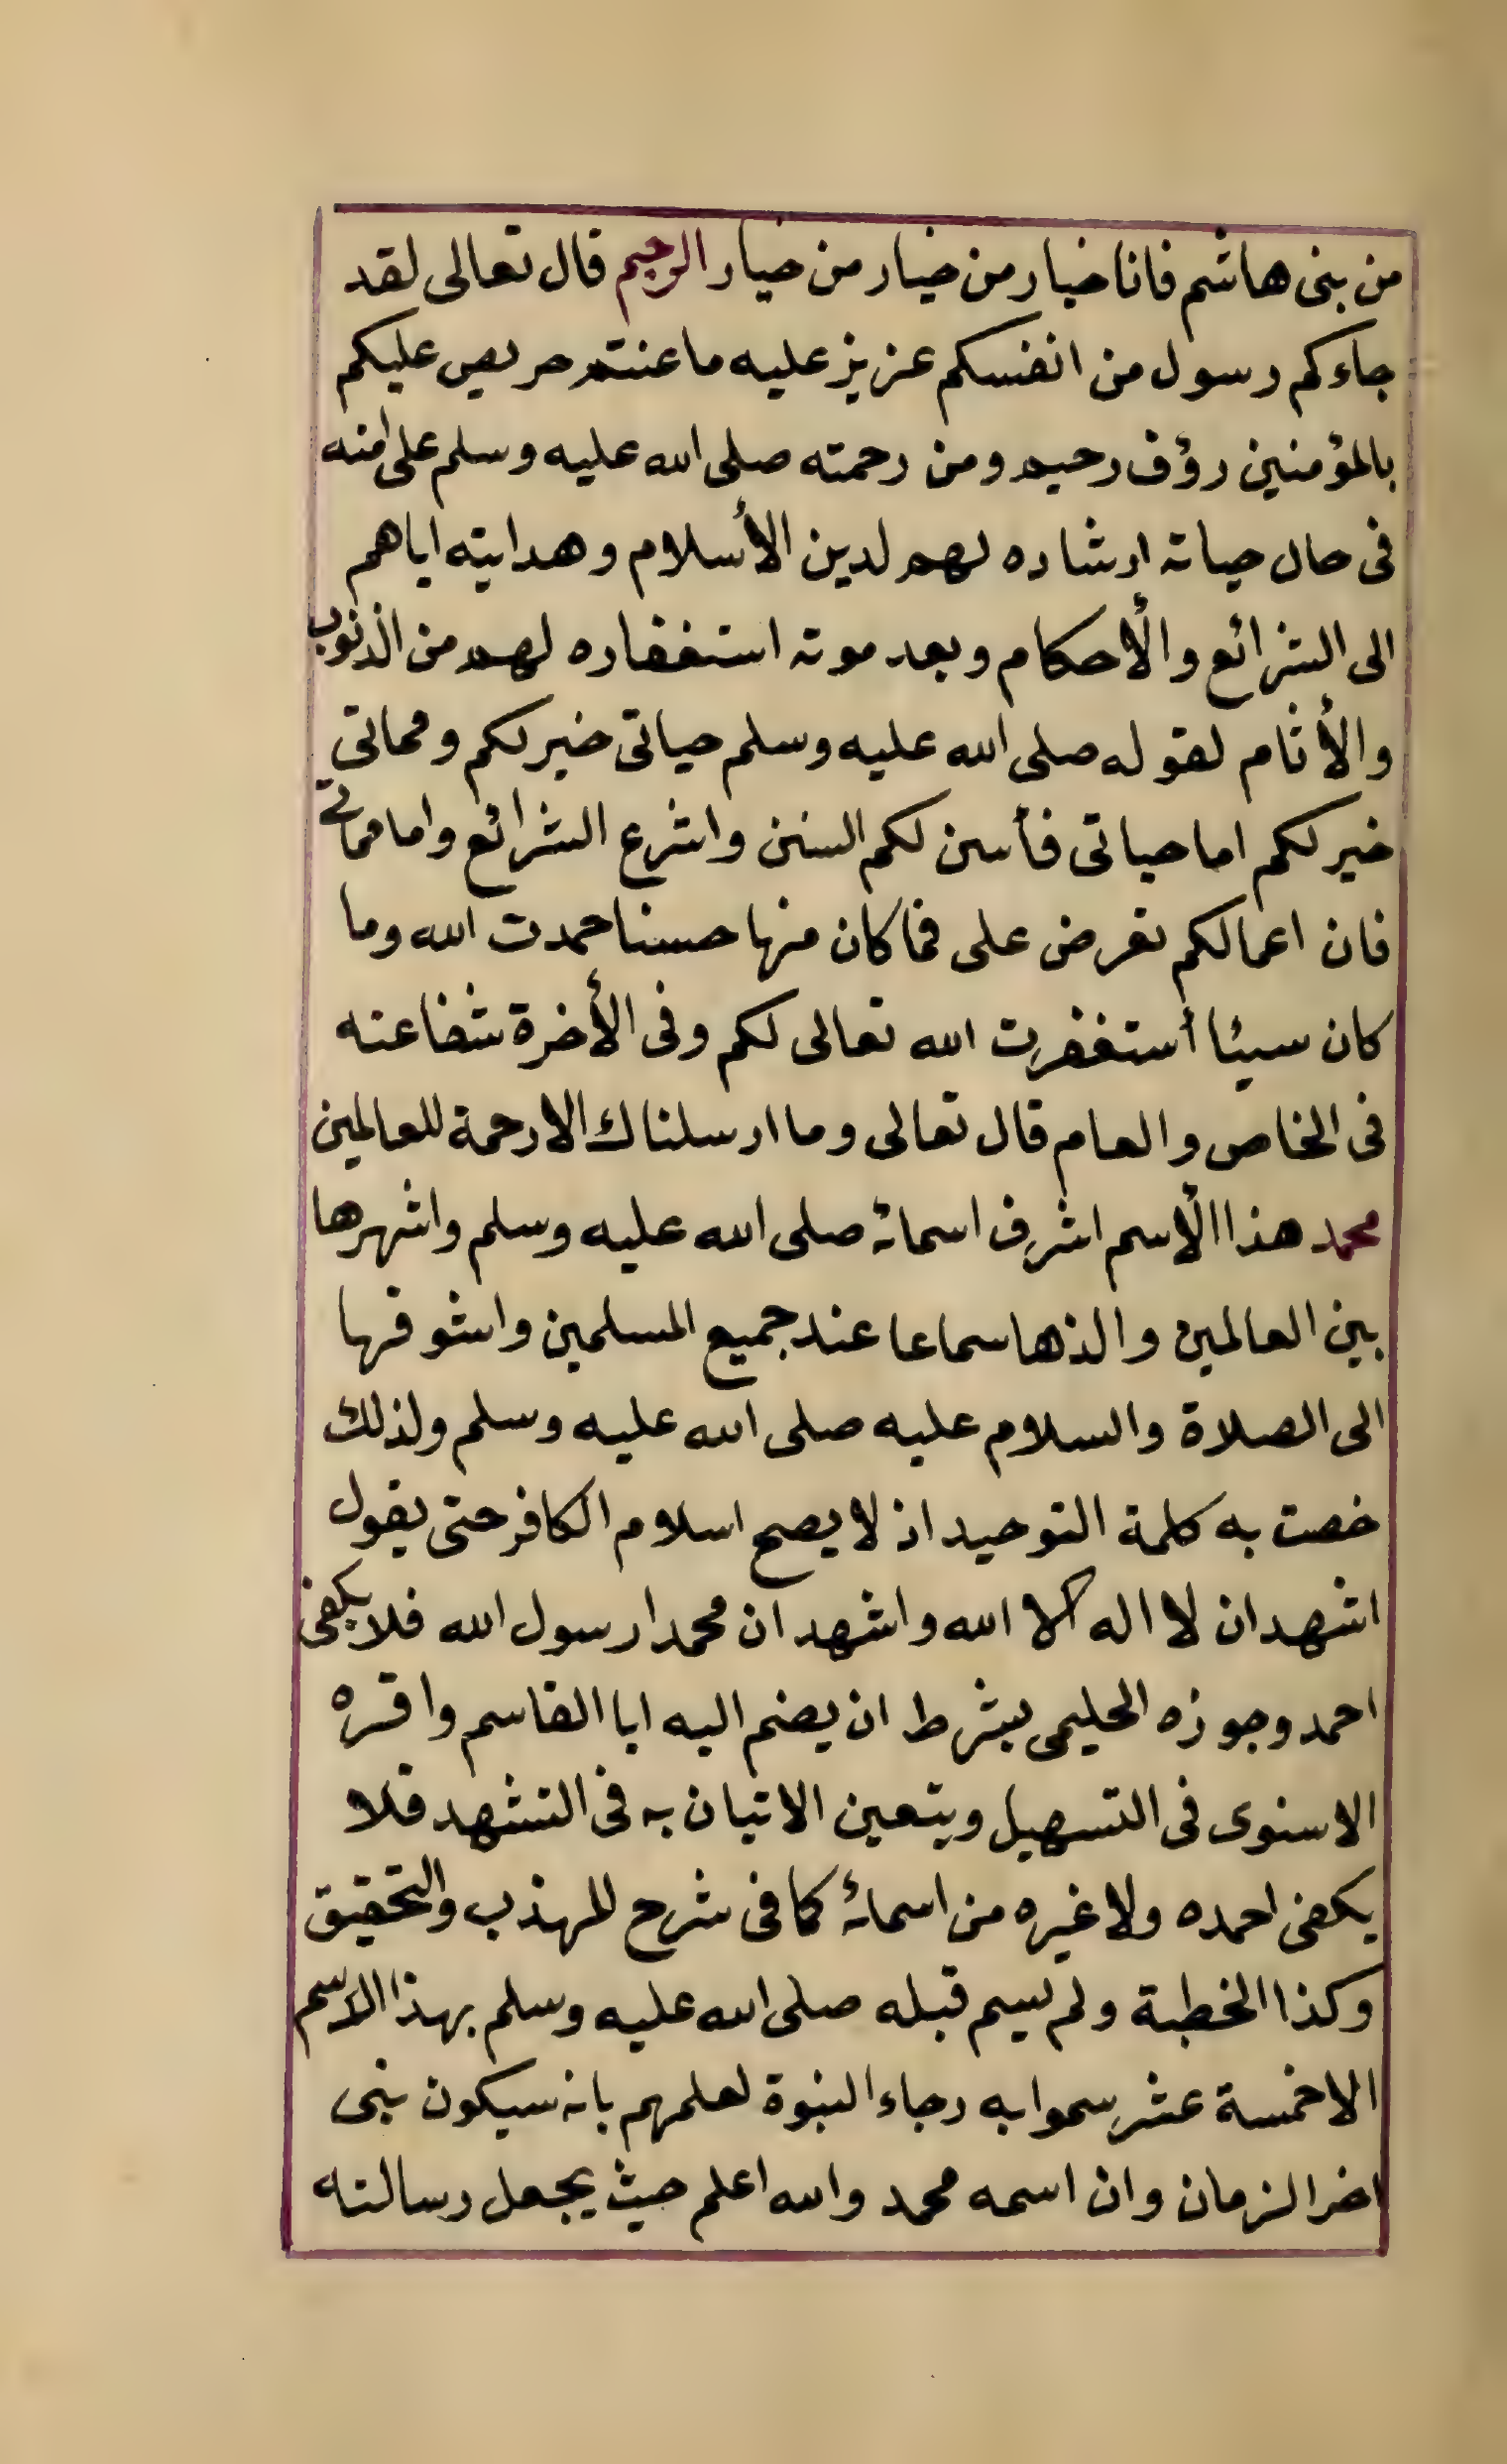 من بنى هاشم فانا خيار من خيار من خيار الرحيم قال تعالى لقد
جاءكم رسول من انفسكم عزيز عليه ما عنتم حريص عليكم
بالمؤمنين رؤف رحيم ومن رحمته صلى الله عليه وسلم على امته
فى حال حياته ارشاده لهم لدين الأسلام وهدايته اياهم
الى الشرائع والأحكام وبعد موته استغفاره لهم من الذنوب
والأثام لقوله صلى الله عليه وسلم حياتى خير لكم ومماتى
خير لكم اما حياتى فأسن لكم السنن واشرع الشرائع واما مماتى
فان اعمالكم تعرض على فما كان منها حسنا حمدت الله وما
كان سيئا أستغفرت الله تعالى لكم وفى الأخرة شفاعته
فى الخاص والعام قال تعالى وما ارسلناك الا رحمة للعالمين
محمد هذا الأسم اشرف اسمائه صلى الله عليه وسلم واشهرها
بين العالمين والذها سماعا عند جميع المسلمين واشوقها
الى الصلاة والسلام عليه صلى الله عليه وسلم ولذلك
خصت به كلمة التوحيد اذ لا يصح اسلام الكافر حتى يقول
اشهد ان لا اله الا الله واشهد ان محمدا رسول الله فلا يكفى
احمد وجوزه الحليمى بشرط ان يضم اليه ابا القاسم واقره
الاسنوى فى التسهيل ويتعين الاتيان به فى التشهد فلا
يكفى احمده ولا غيره من اسمائه كما فى شرح المهذب والتحقيق
وكذا الخطبة ولم يسم قبله صلى الله عليه وسلم بهذا الاسم
الا خمسة عشر سموا به رجاء النبوة لعلمهم بانه سيكون نبى
اخر الزمان وان اسمه محمد والله اعلم حيث يجعل رسالته